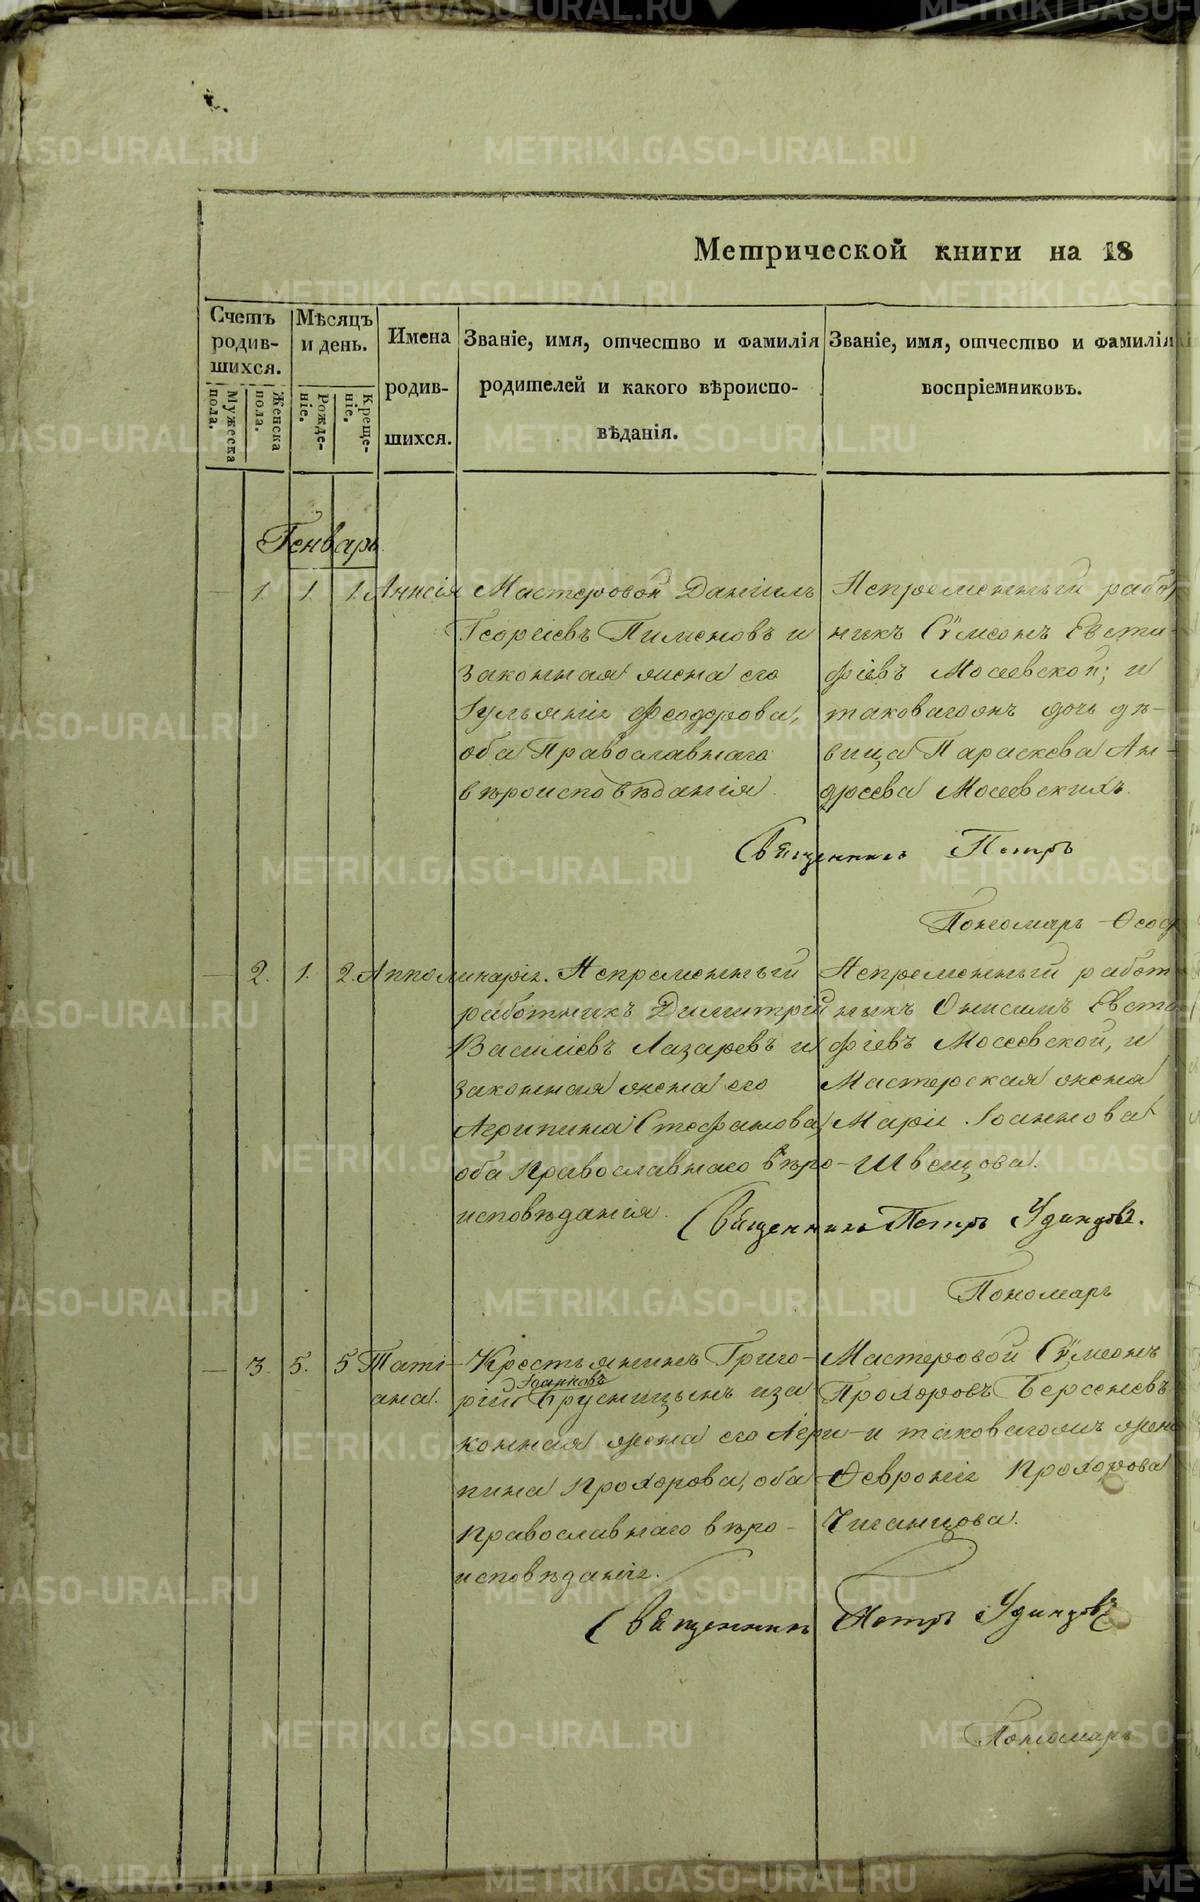 Метрической книги на 18
Счетъ родив-шихся.
Мужеска пола.
Женска пола.
Мѣсяцъ и день.
Рожде-ніе.
Креще-ніе.
Имена родив-шихся.
Званіе, имя, отчество и фамилія
родителей и какого вѣроиспо-
вѣданія.
Званіе, имя, отчество и фамилія
воспріемниковъ.
Генварь
1. 1. 1. Аннсія
Мастеровой Даніилъ
Георгіевъ Пименовъ и
законная жена его
Іульянія Феодорова,
оба Православнаго
вѣроисповѣданія.
Непременный работ
никъ Сѵмеонъ Евста-
фіевъ Мосеевской; и
таковагожъ дочь дѣ-
вица Параскева Ан-
дреева Мосеевскихъ.
Священникъ Петръ
Пономарь Ѳеод
2. 1. 2. Апполинарія.
Непременный
работникъ Димитрій
Василіевъ Лазаревъ и
законная жена его
Агрипина Стефанова,
оба Православнаго вѣро-
исповѣданія.
Непременный работ
никъ Онисимъ Евста
фіевъ Мосеевской, и
Мастерская жена
Марія Іоаннова
Швецова.
Священникъ Петръ Удинцовъ.
Пономарь
3. 5. 5 Таті-
ана.
Крестьянинъ Григо-
рій Іоанновъ Брусницынъ и за
конная жена его Агри-
пина Прохорова, оба
Православнаго вѣро-
исповѣданія.
Мастеровой Сѵмеонъ
Прохоровъ Берсеневъ
и таковагожъ жена
Ѳевронія Прохорова
Чиганцова.
Священникъ Петръ Удинцовъ
Пономарь
METRIKI.GASO-URAL.RU